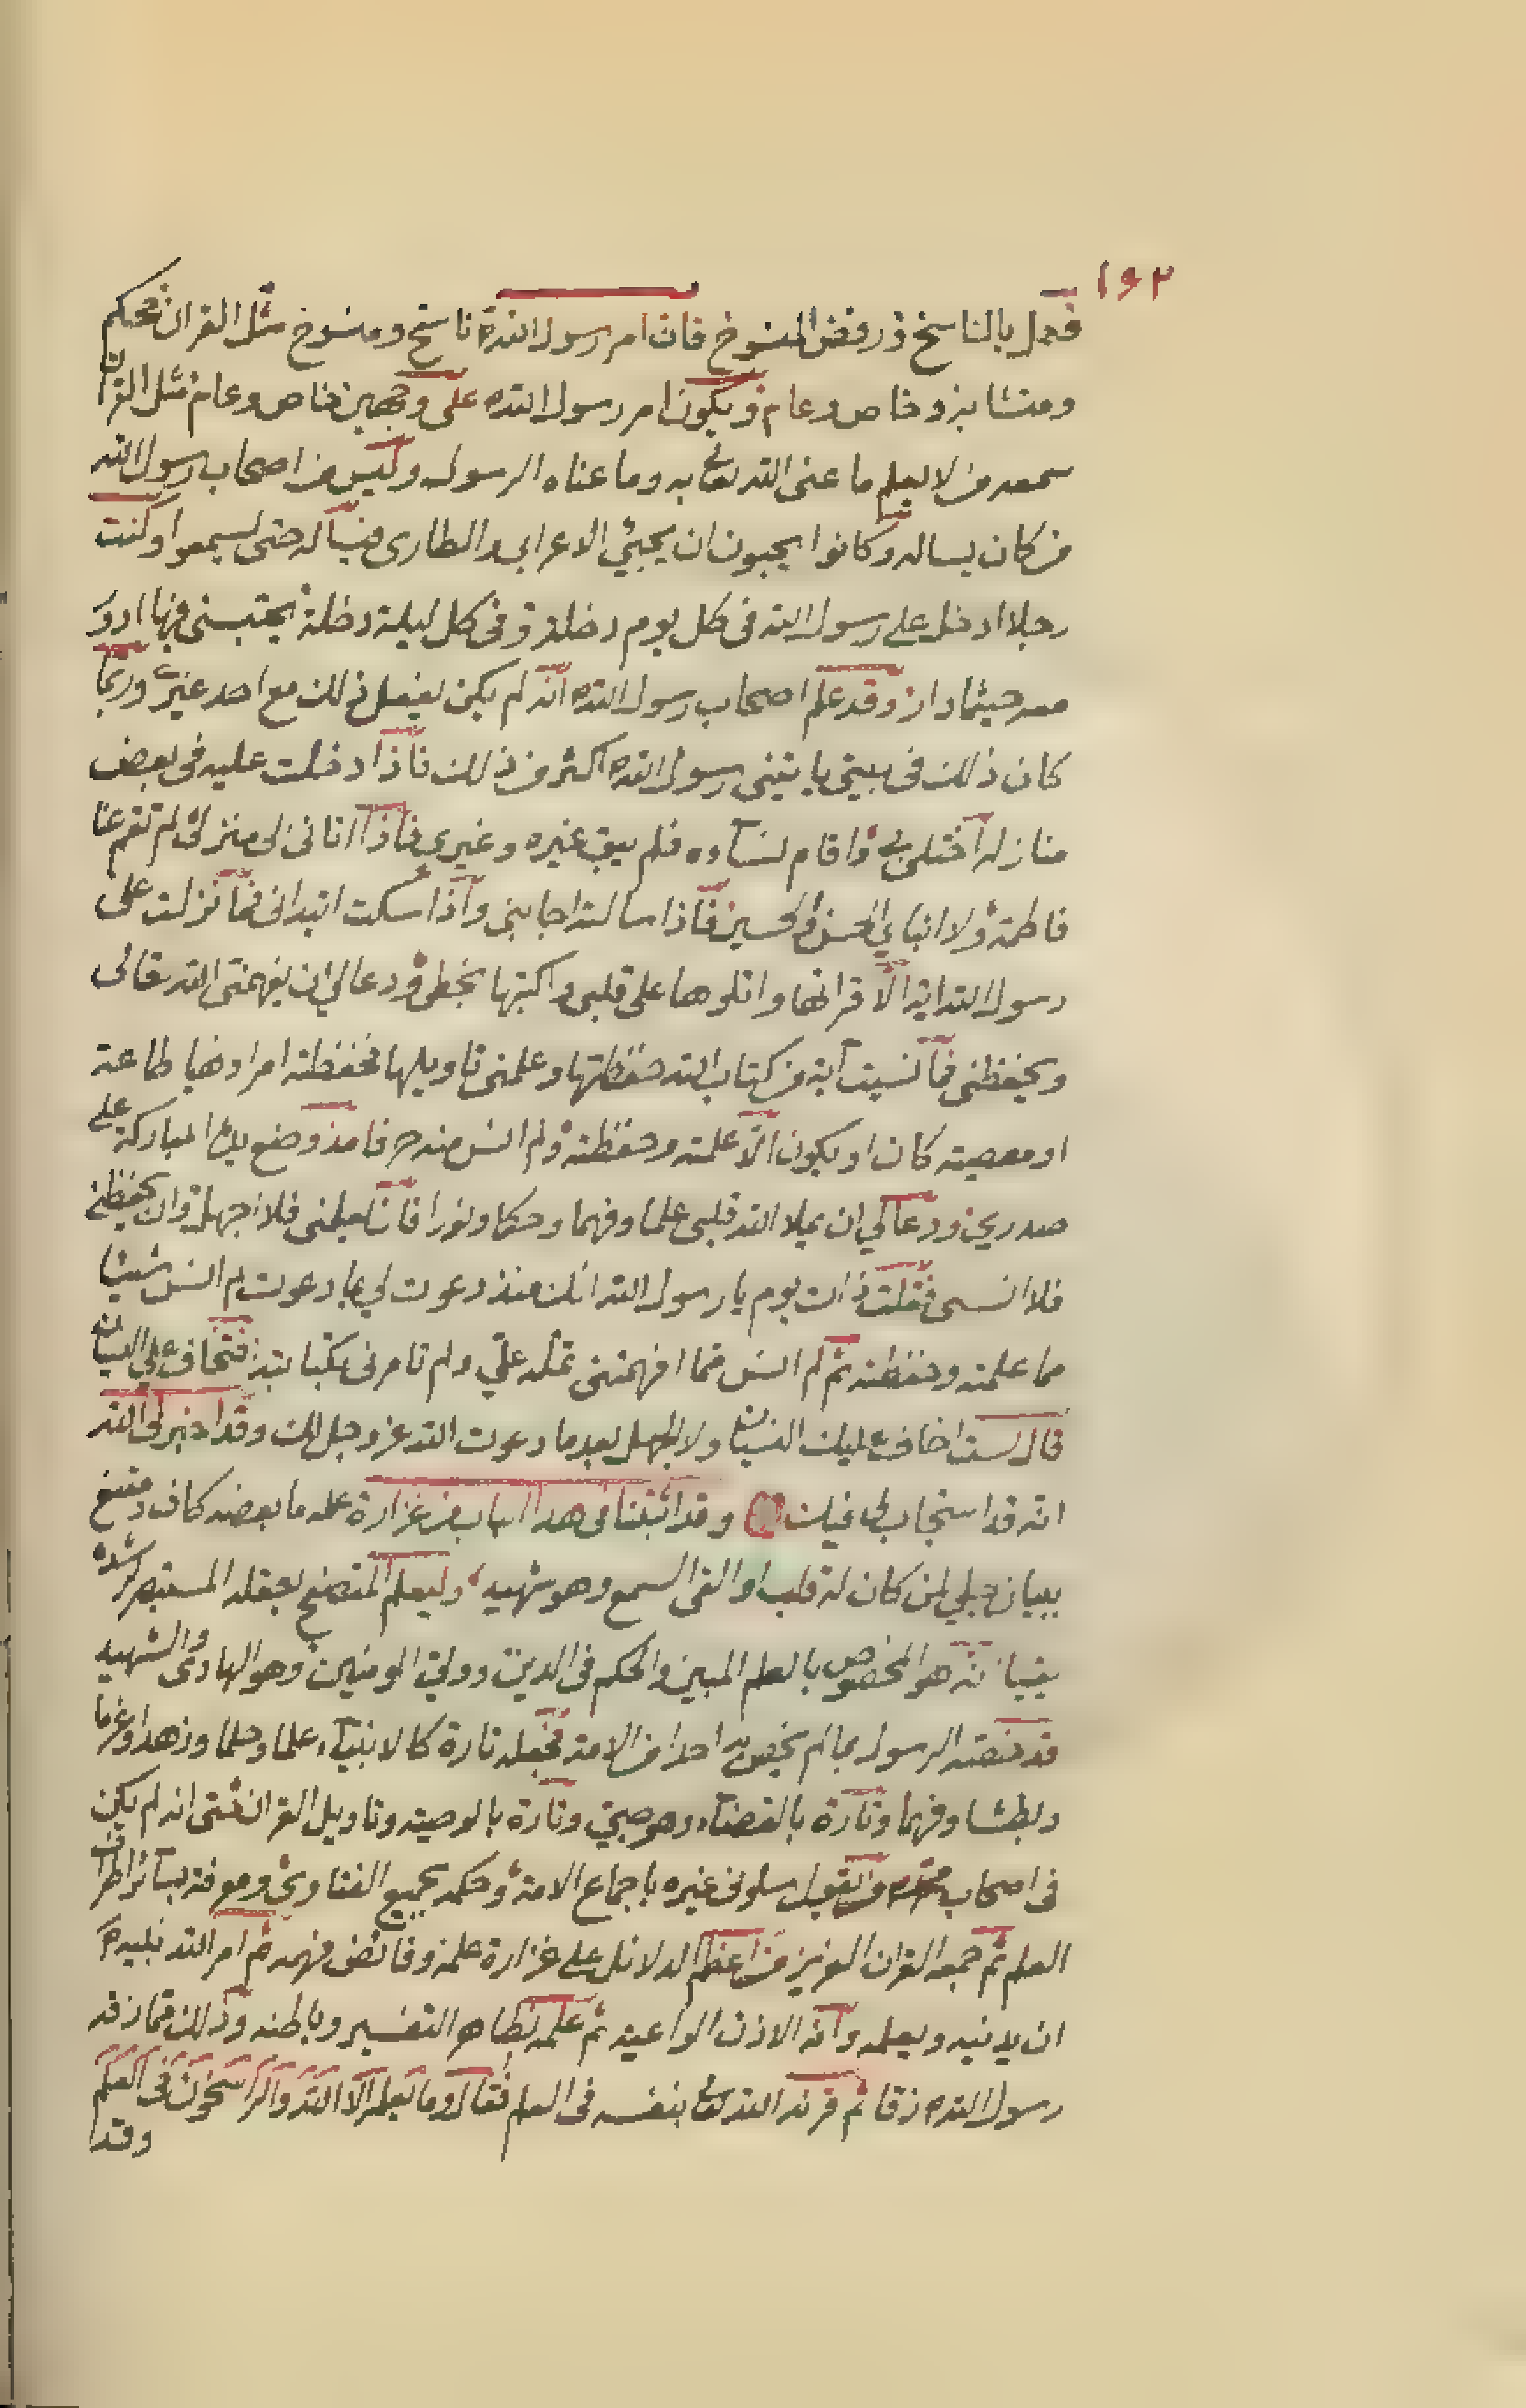 ١٩٢
فعمل بالناسخ ورفض المنسوخ فان امر رسول الله ناسخ ومنسوخ مثل القران ومحكم
ومتشابه وخاص وعام ويكون امر رسول الله على وجهين خاص وعام مثل القران
سمعه من لا يعلم ما عنى الله تعا به وما عناه الرسول وليس من اصحاب رسول الله
من كان يساله وكانوا يحبون ان يجيئ الاعرابي والطارى فيساله حتى يسمعوا وكنت
رجلا ادخل على رسول الله فى كل يوم دخلة وفى كل ليلة دخلة فيها ادور
معه حيثما دار وقد علم اصحاب رسول الله انه لم يكن يفعل ذلك مع احد غيرى وربما
كان ذلك فى بيتي ياتينى رسول الله اكثر من ذلك فاذا دخلت عليه فى بعض
منازله اختلى بي واقام نساءه فلم يبق غيره وغيرى فاذا اتانى الى منزلى لم تقم عنا
فاطمة ولا ابناي الحسن والحسين فاذا سالته اجابنى واذا سكت ابتدانى فما نزلت على
رسول الله اية الا قراتها واتلوها على قلبى واكتبها بخطى ودعا لي ان يفهمنى الله تعالى
ويحفظنى فما نسيت آية من كتاب الله حفظتها وعلمنى تاويلها فحفظته امرا ونهيا طاعة
او معصية كان او يكون الا علمته وحفظته ولم انس منه حرفا مذ وضع يده المباركة على
صدري ودعا لي ان يملا الله قلبى علما وفهما وحكما ونورا فان يعلمنى فلا اجهل وان يحفظنى
فلا انسى فقلت ذات يوم يا رسول الله انك منذ دعوت لي بما دعوت لم انس شيئا
مما علمته وحفظته ثم لم انس مما افهمتنى تمله علي ولم تامرنى بكتابته افتخاف علي النسيان
قال لست اخاف عليك النسيان ولا الجهل بعد ما دعوت الله عز وجل لك وقد اخبرنى الله
انه قد استجاب لى فيك وقد اثبتنا فى هذا الباب من غزارة علمه ما بعضه كاف ومقنع
ببيان جلي لمن كان له قلب او القى السمع وهو شهيد وليعلم المتصفح بعقله المستبصر برشده
يقينا انه هو المخصوص بالعلم المبين والحكم فى الدين وولي المومنين وهو الهادى والشهيد
قد خصه الرسول بما لم يخص به احدا من الامة فجعله تارة كالانبياء علما وحلما وزهدا وعزما
وبطشا وفهما وتارة بالقضاء وهو صبي وتارة بالوصية وتاويل القران حتى انه لم يكن
فى اصحاب محمد من يقول سلونى غيره باجماع الامة وحكمه بجميع الفتاوى ومعرفة بسائر اطراف
العلم ثم جمعه القران العزيز من اعظم الدلائل على غزارة علمه وفائض فهمه ثم امر الله نبيه
ان يدنيه ويعلمه وانه الاذن الواعية ثم علمه بظاهر التفسير وباطنه وذلك مما زقه
رسول الله زقا ثم قرنه الله تعا بنفسه فى العلم فقال وما يعلم الا الله والراسخون فى العلم
وقد